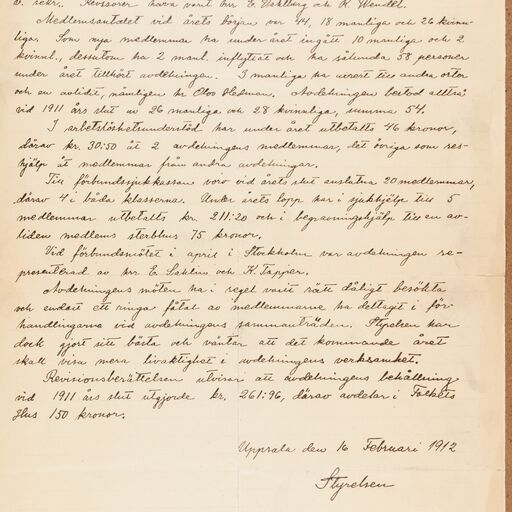 v. sekr. Revisorer hava varit hrr E. Dahlberg och K. Wendel.
Medlemsantalet vid årets början var 44, 18 manliga och 26 kvinn-
liga. Som nya medlemmar ha under året ingått 10 manliga och 2
kvinnl., dessutom ha 2 manl. inflyttat och ha således 58 personer
under året tillhört avdelningen. 3 manliga ha utrest till andra orter
och en avlidit, nämligen hr Olov Hedman. Avdelningen bestod alltså
vid 1911 års slut av 26 manliga och 28 kvinnliga, summa 54.
I arbetslöshetsunderstöd har under året utbetalts 46 kronor,
därav kr. 30:50 åt 2 avdelningens medlemmar, det övriga som res-
hjälp åt medlemmar från andra avdelningar.
Till förbundssjukkassan voro vid årets slut anslutna 20 medlemmar,
därav 4 i båda klasserna. Under årets lopp har i sjukhjälp till 5
medlemmar utbetalts kr. 211:20 och i begravningshjälp till en av-
liden medlems sterbhus 75 kronor.
Vid förbundsmötet i april i Stockholm var avdelningen re-
presenterad av hrr E. Sahlin och K. Tapper.
Avdelningens möten ha i regel varit rätt dåligt besökta
och endast ett ringa fåtal av medlemmarne ha deltagit i för-
handlingarna vid avdelningens sammanträden. Styrelsen har
dock gjort sitt bästa och väntar att det kommande året
skall visa mera livaktighet i avdelningens verksamhet.
Revisionsberättelsen utvisar att avdelningens behållning
vid 1911 års slut utgjorde kr. 261:96, därav andelar i Folkets
Hus 150 kronor.
Uppsala den 16 Februari 1912
Styrelsen